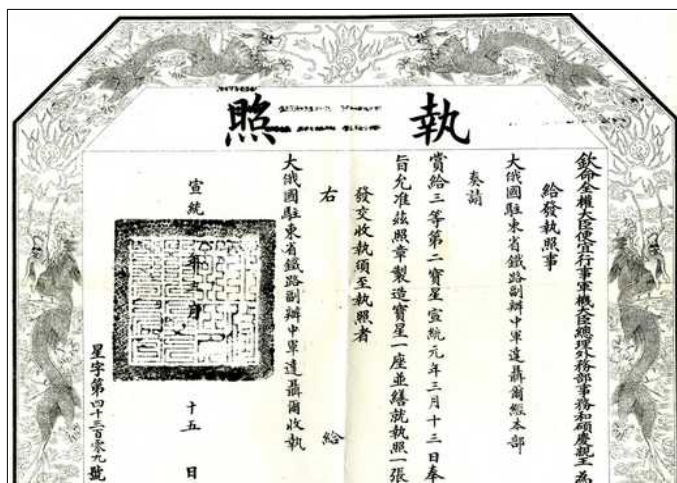 執照
欽命全權大臣便宜行事軍機大臣總理外務部事務和碩慶親王 為
給發執照事
大俄國駐東省鐵路副辦中軍達聶爾經本部
奏請
賞給三等第二寶星宣統元年三月十三日奉
旨允准茲照章製造寶星一座並繕就執照一張
發交收執須至執照者
右 給
大俄國駐東省鐵路副辦中軍達聶爾收執
宣統 年三月 十五 日
星字第四千三百零九號